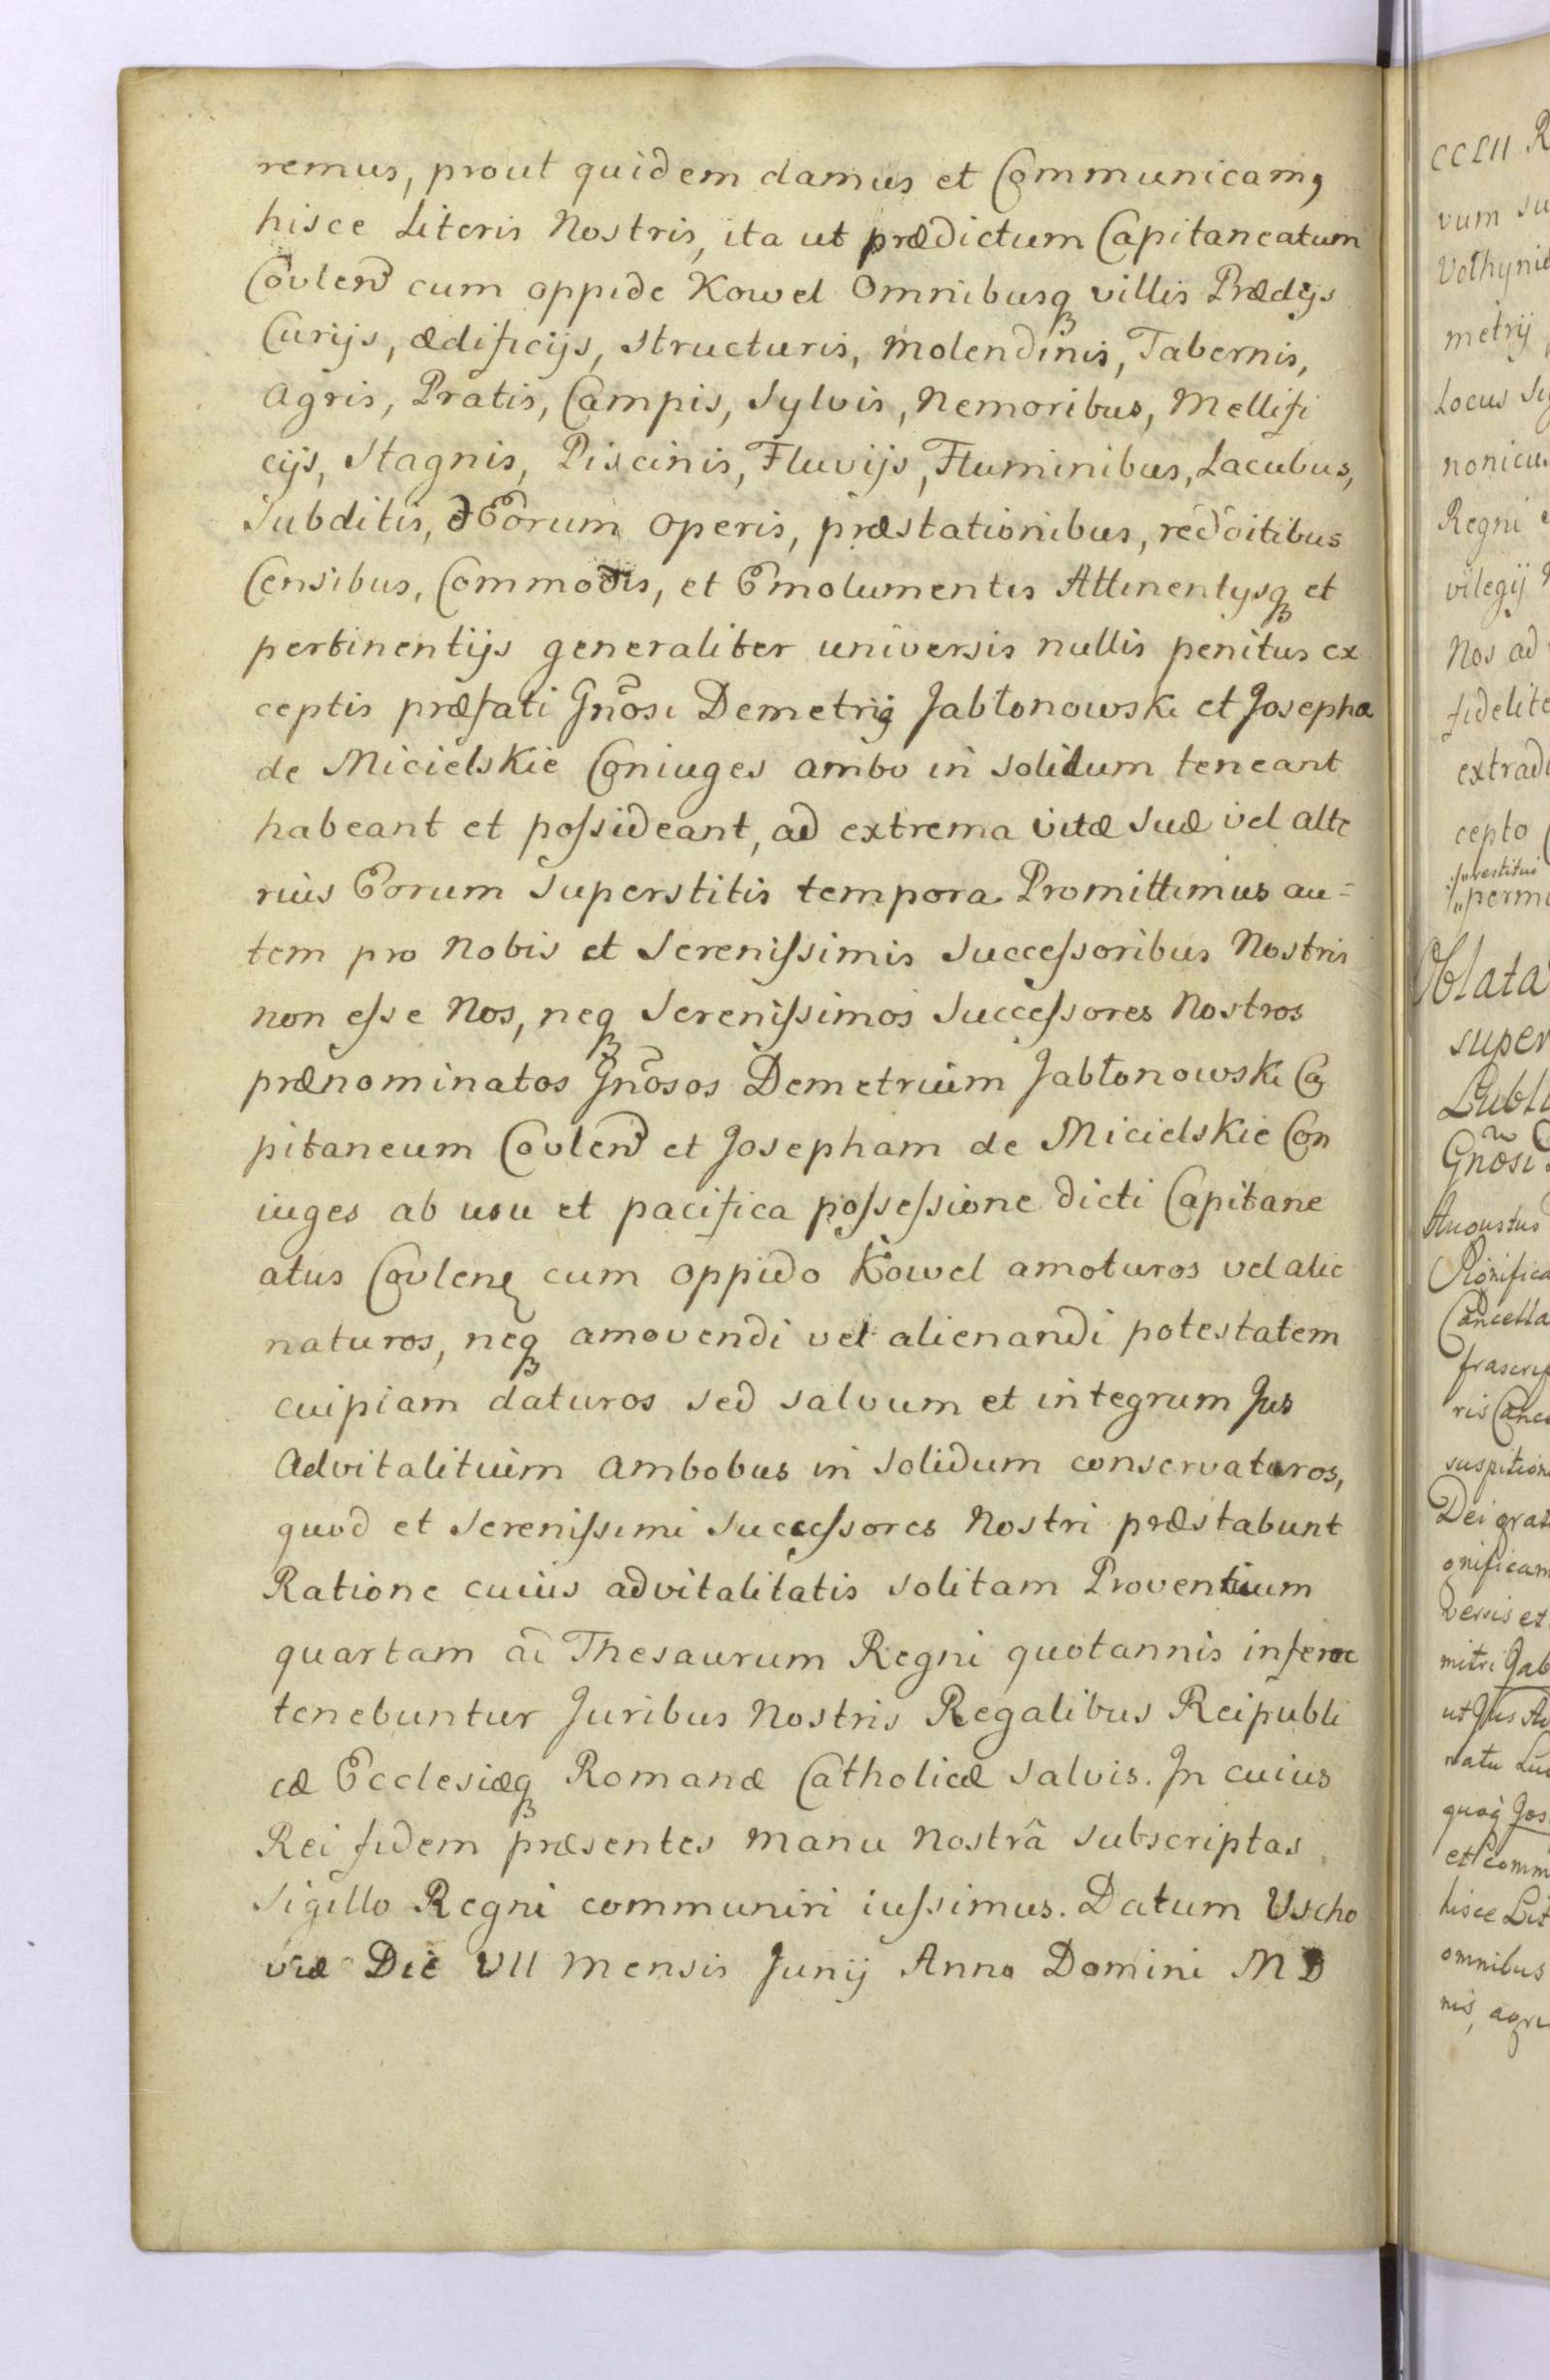 remus, prout quidem damus et Communicamq
hisce Literis Nostris, ita ut prædictum Capitaneatum
Covlen cum oppide Kowel Omnibusq villis Prædijs
Curijs, ædificijs, structuris, Molendinis, Tabernis,
Agris, Pratis, Campis, Sylvis, Nemoribus, Mellifi
cijs, Stagnis, Piscinis, Fluvijs, Fluminibus, Lacubus,
Subditis, Eorum Operis, præstationibus, redditibus
Censibus, Commodis, et Emolumentis Attinentysq et
pertinentijs generaliter universis nullis penitus ex
ceptis præfati Gnõsi Demetrij Jabłonowski et Josepha
de Micielskie Coniuges ambo in solidum teneant
habeant et possideant, ad extrema vitæ suæ vel alte
rius Eorum Superstitis tempora Promittimus au=
tem pro Nobis et Serenissimis Successoribus Nostris
non esse Nos, neq Serenissimos Successores Nostros
prænominatos Gnõsos Demetrium Jabłonowski Ca
pitaneum Covlen et Josepham de Micielskie Con
iuges ab usu et pacifica possessione dicti Capitane
atus Covlen cum oppido Kowel amoturos vel alie
naturos, neq amovendi vel alienandi potestatem
cuipiam daturos sed salvum et integrum Jus
Advitalitium ambobus in solidum conservaturos,
quod et Serenissimi Successores Nostri præstabunt
Ratione cuius advitalitatis solitam Proventuum
quartam ad Thesaurum Regni quotannis inferre
tenebuntur Juribus Nostris Regalibus Reipubli
cæ Ecclesiæq Romanæ Catholicæ salvis. In cuius
Rei fidem præsentes manu Nostrâ subscriptas
Sigillo Regni communiri iussimus. Datum Uscho
viæ Die VII Mensis Junij Anno Domini MD
CCLII
vum
metrij
Locus
Regni
vilegij
Nos ad
cepto
Oblata
super
Gnõsi
Augustus
Dei
mitri
hisce
omnibus
nis,